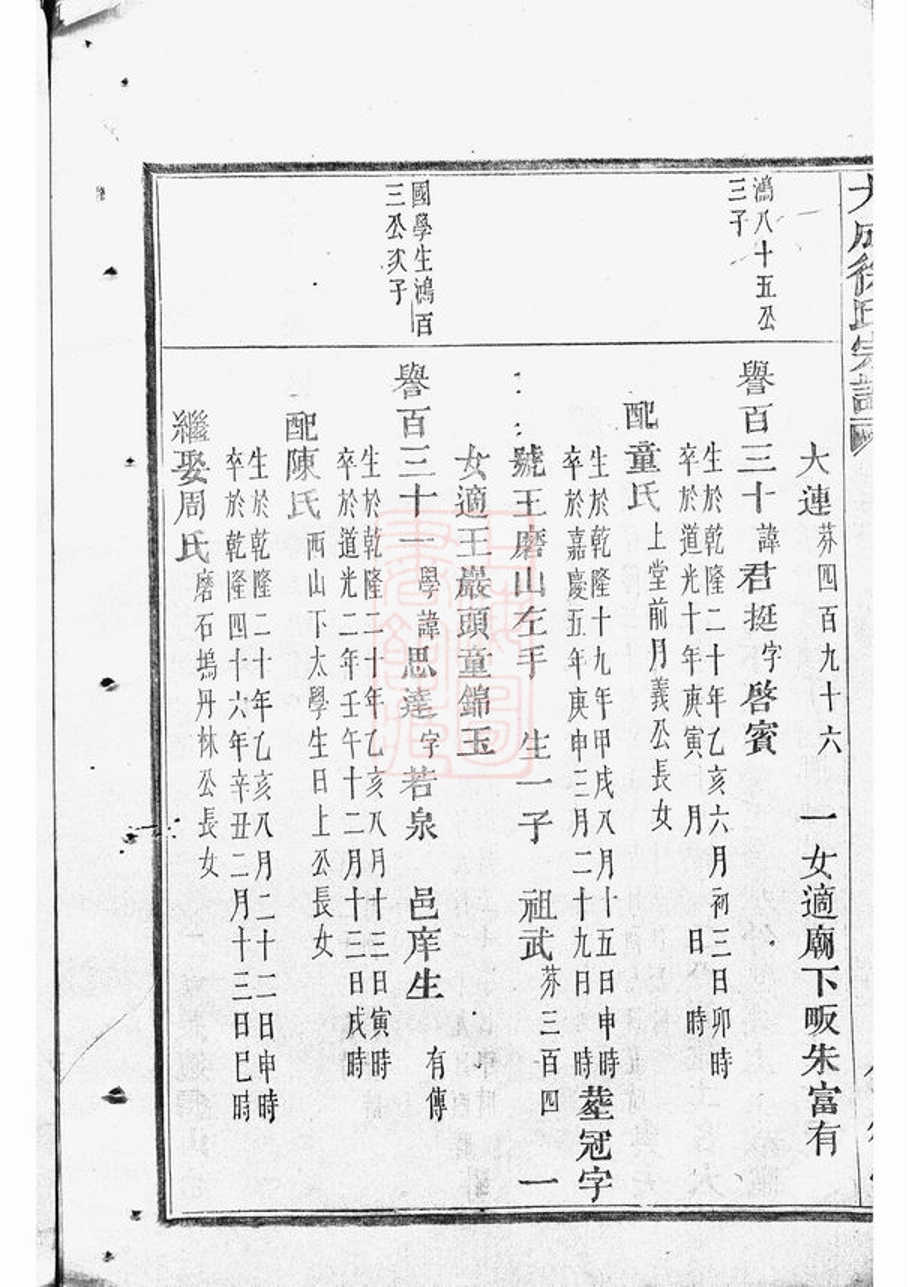 大成徐氏宗譜
鴻八十五公
三子
大連芬四百九十六 一女適廟下畈朱富有
譽百三十諱君挺字啓賓
生於乾隆二十年乙亥六月初三日卯時
卒於道光十年庚寅 月 日 時
配童氏上堂前月義公長女
生於乾隆十九年甲戌八月十五日申時
卒於嘉慶五年庚申三月二十九日 時
塟冠字
號王磨山左手 生一子 祖武芬三百四 一
女適王巖頭童錦玉
國學生鴻百
三公次子
譽百三十一學諱思達字若泉 邑庠生 有傳
生於乾隆二十年乙亥八月十三日寅時
卒於道光二年壬午十二月十三日戌時
配陳氏西山下太學生日上公長女
生於乾隆二十年乙亥八月二十二日申時
卒於乾隆四十六年辛丑二月十三日巳時
繼娶周氏磨石塢丹林公長女